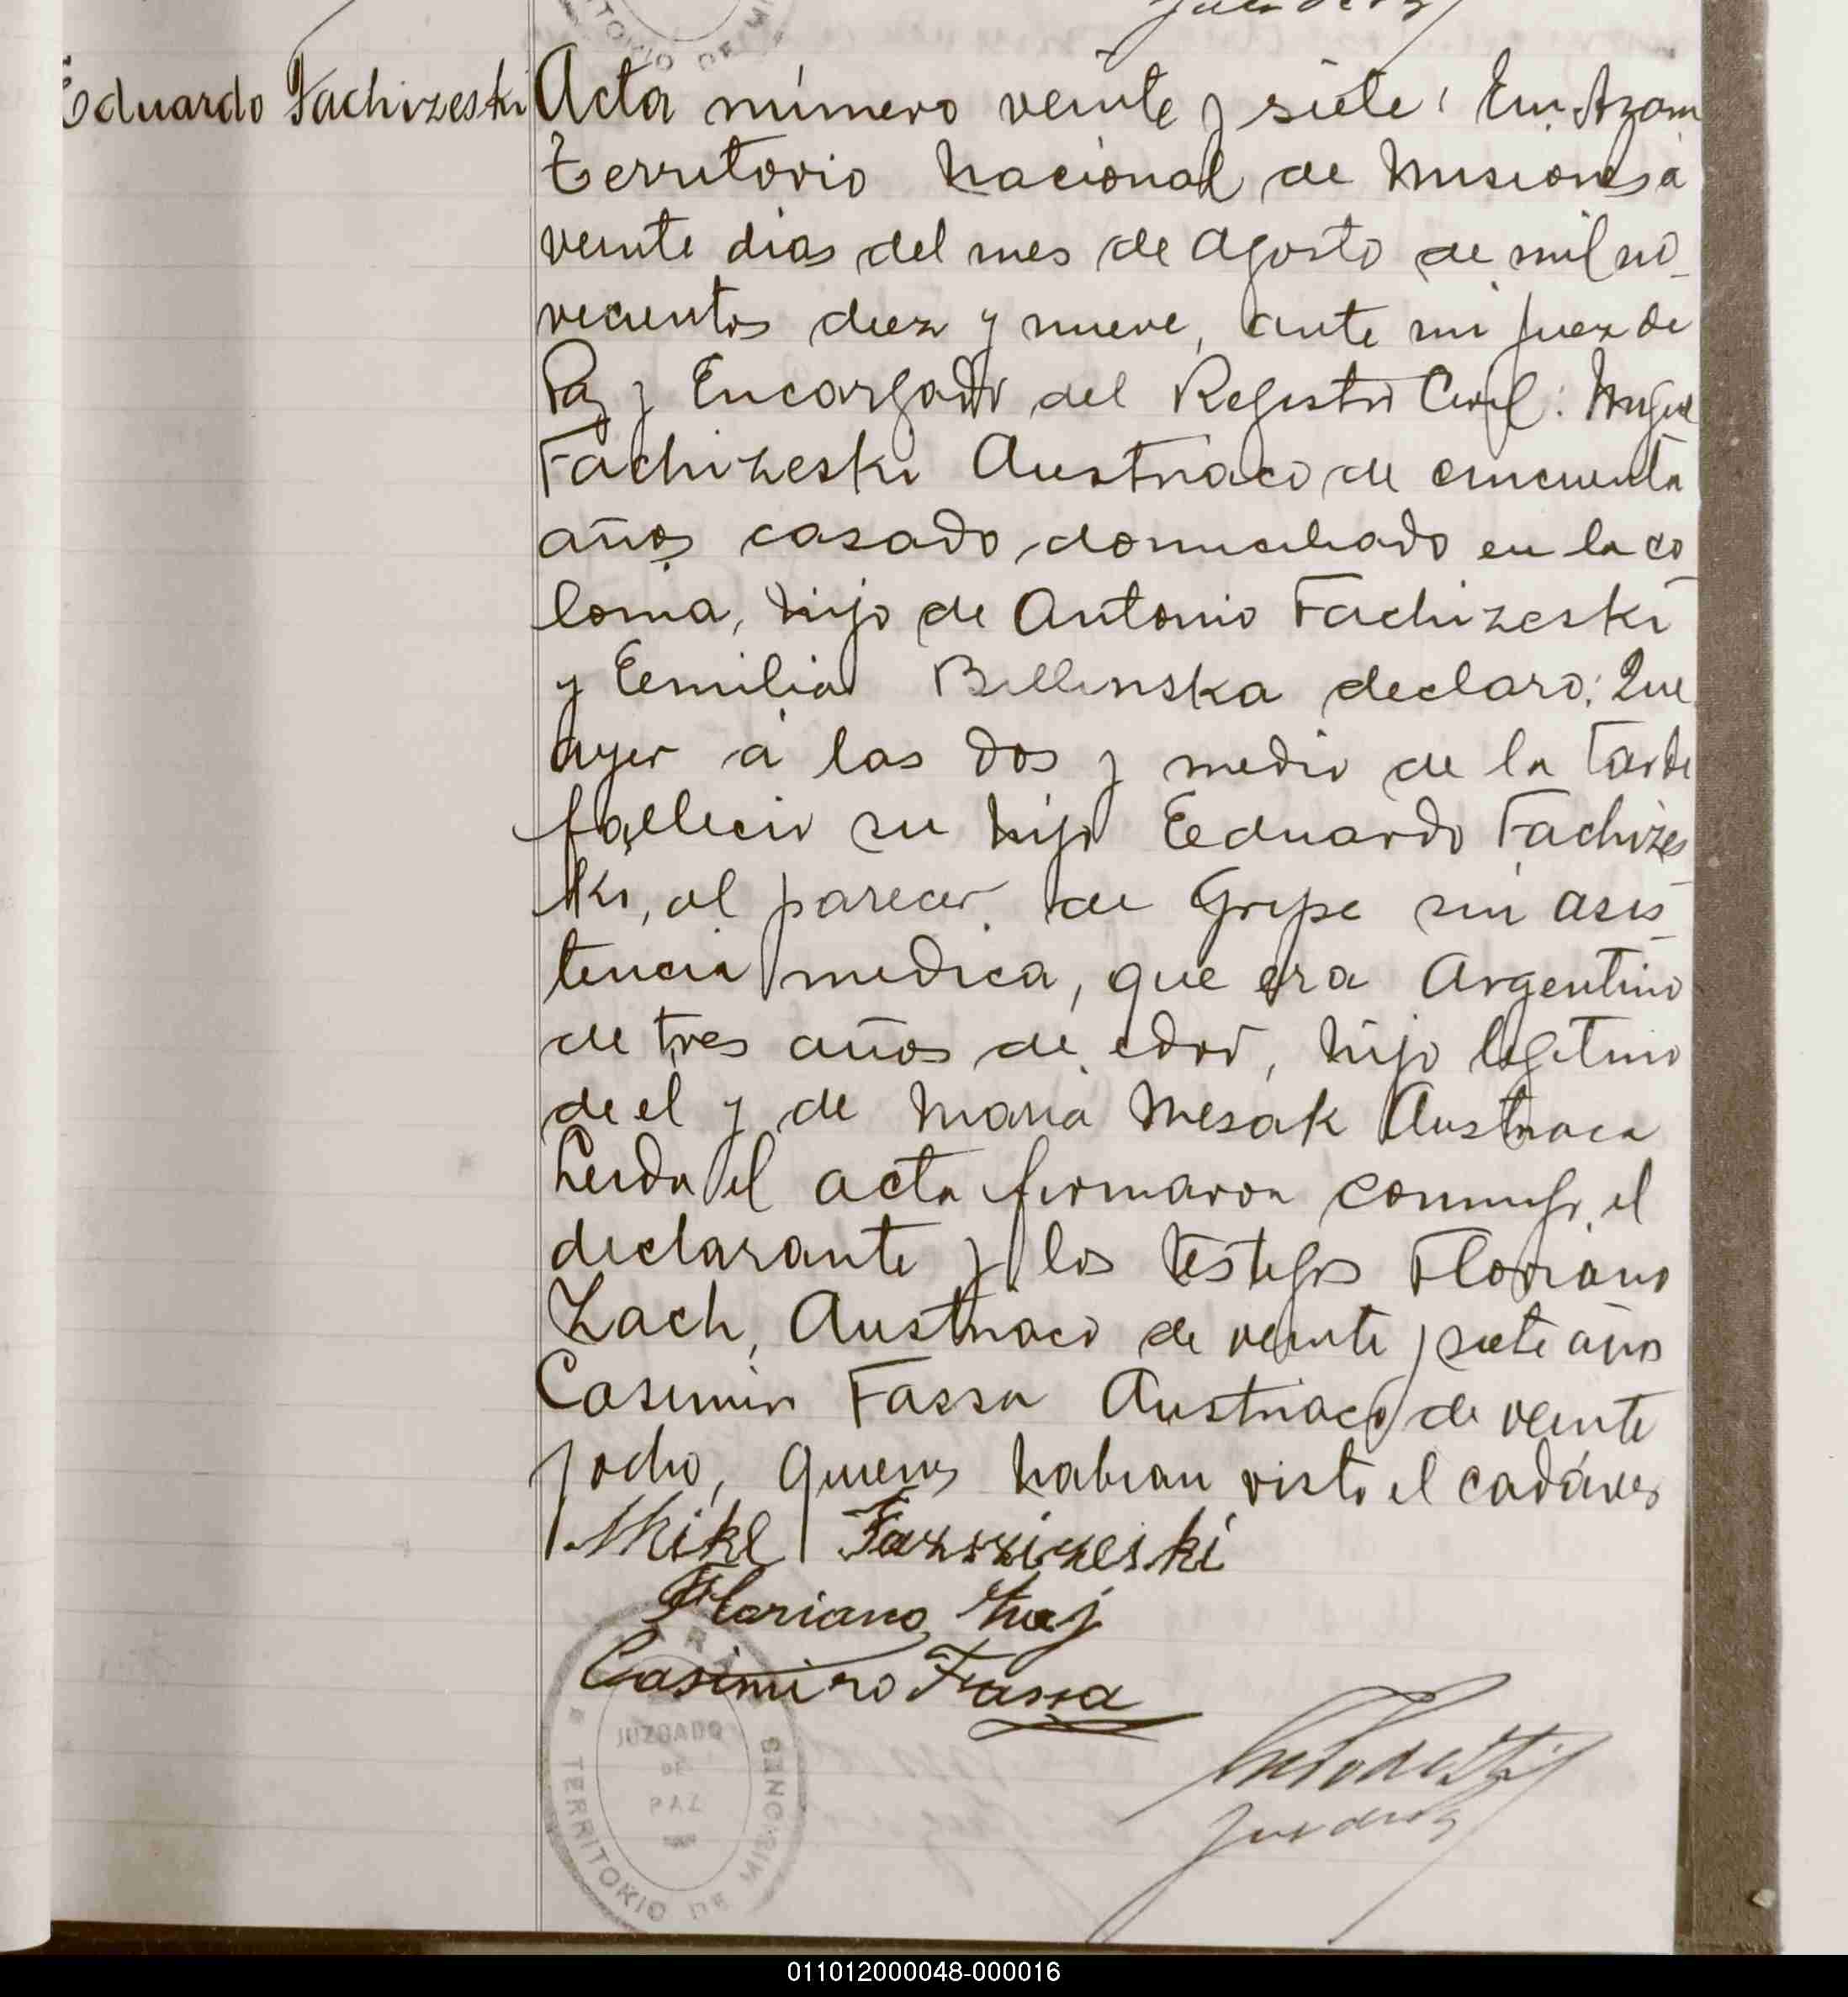 Eduardo Fachizeski
Acta número veinte y siete: En Azara
territorio Nacional de Misiones á
veinte dias del mes de Agosto de mil no_
vecientos diez y nueve, ante mi Juez de
Paz y Encargado del Registro Civil: Miguel
Fachizeski Austriaco de cincuenta
años casado domiciliado en la co
lonia, hijo de Antonio Fachizeski
y Eemilia Billinska declaro: Que
ayer á las dos y media de la tarde
fallecio su hijo Eeduardo Fachizes
ki, al parecer de Gripe sin asis_
tencia medica, que era Argentino
de tres años de edad, hijo legitimo
de el y de Maria Mesak Austriaca
Leida el acta firmaron conmigo el
declarante y los testigos Floriano
Zach, Austriaco de veinte y siete años
Casimiro Fassa Austriaco de veinte
y ocho, quienes habian visto el cadáver
Mikl Fazzizeski
Floriano
Casimiro Fassa
JUZGADO
DE
PAZ
TERRITORIO DE MISIONES
Juez de Paz
011012000048-000016